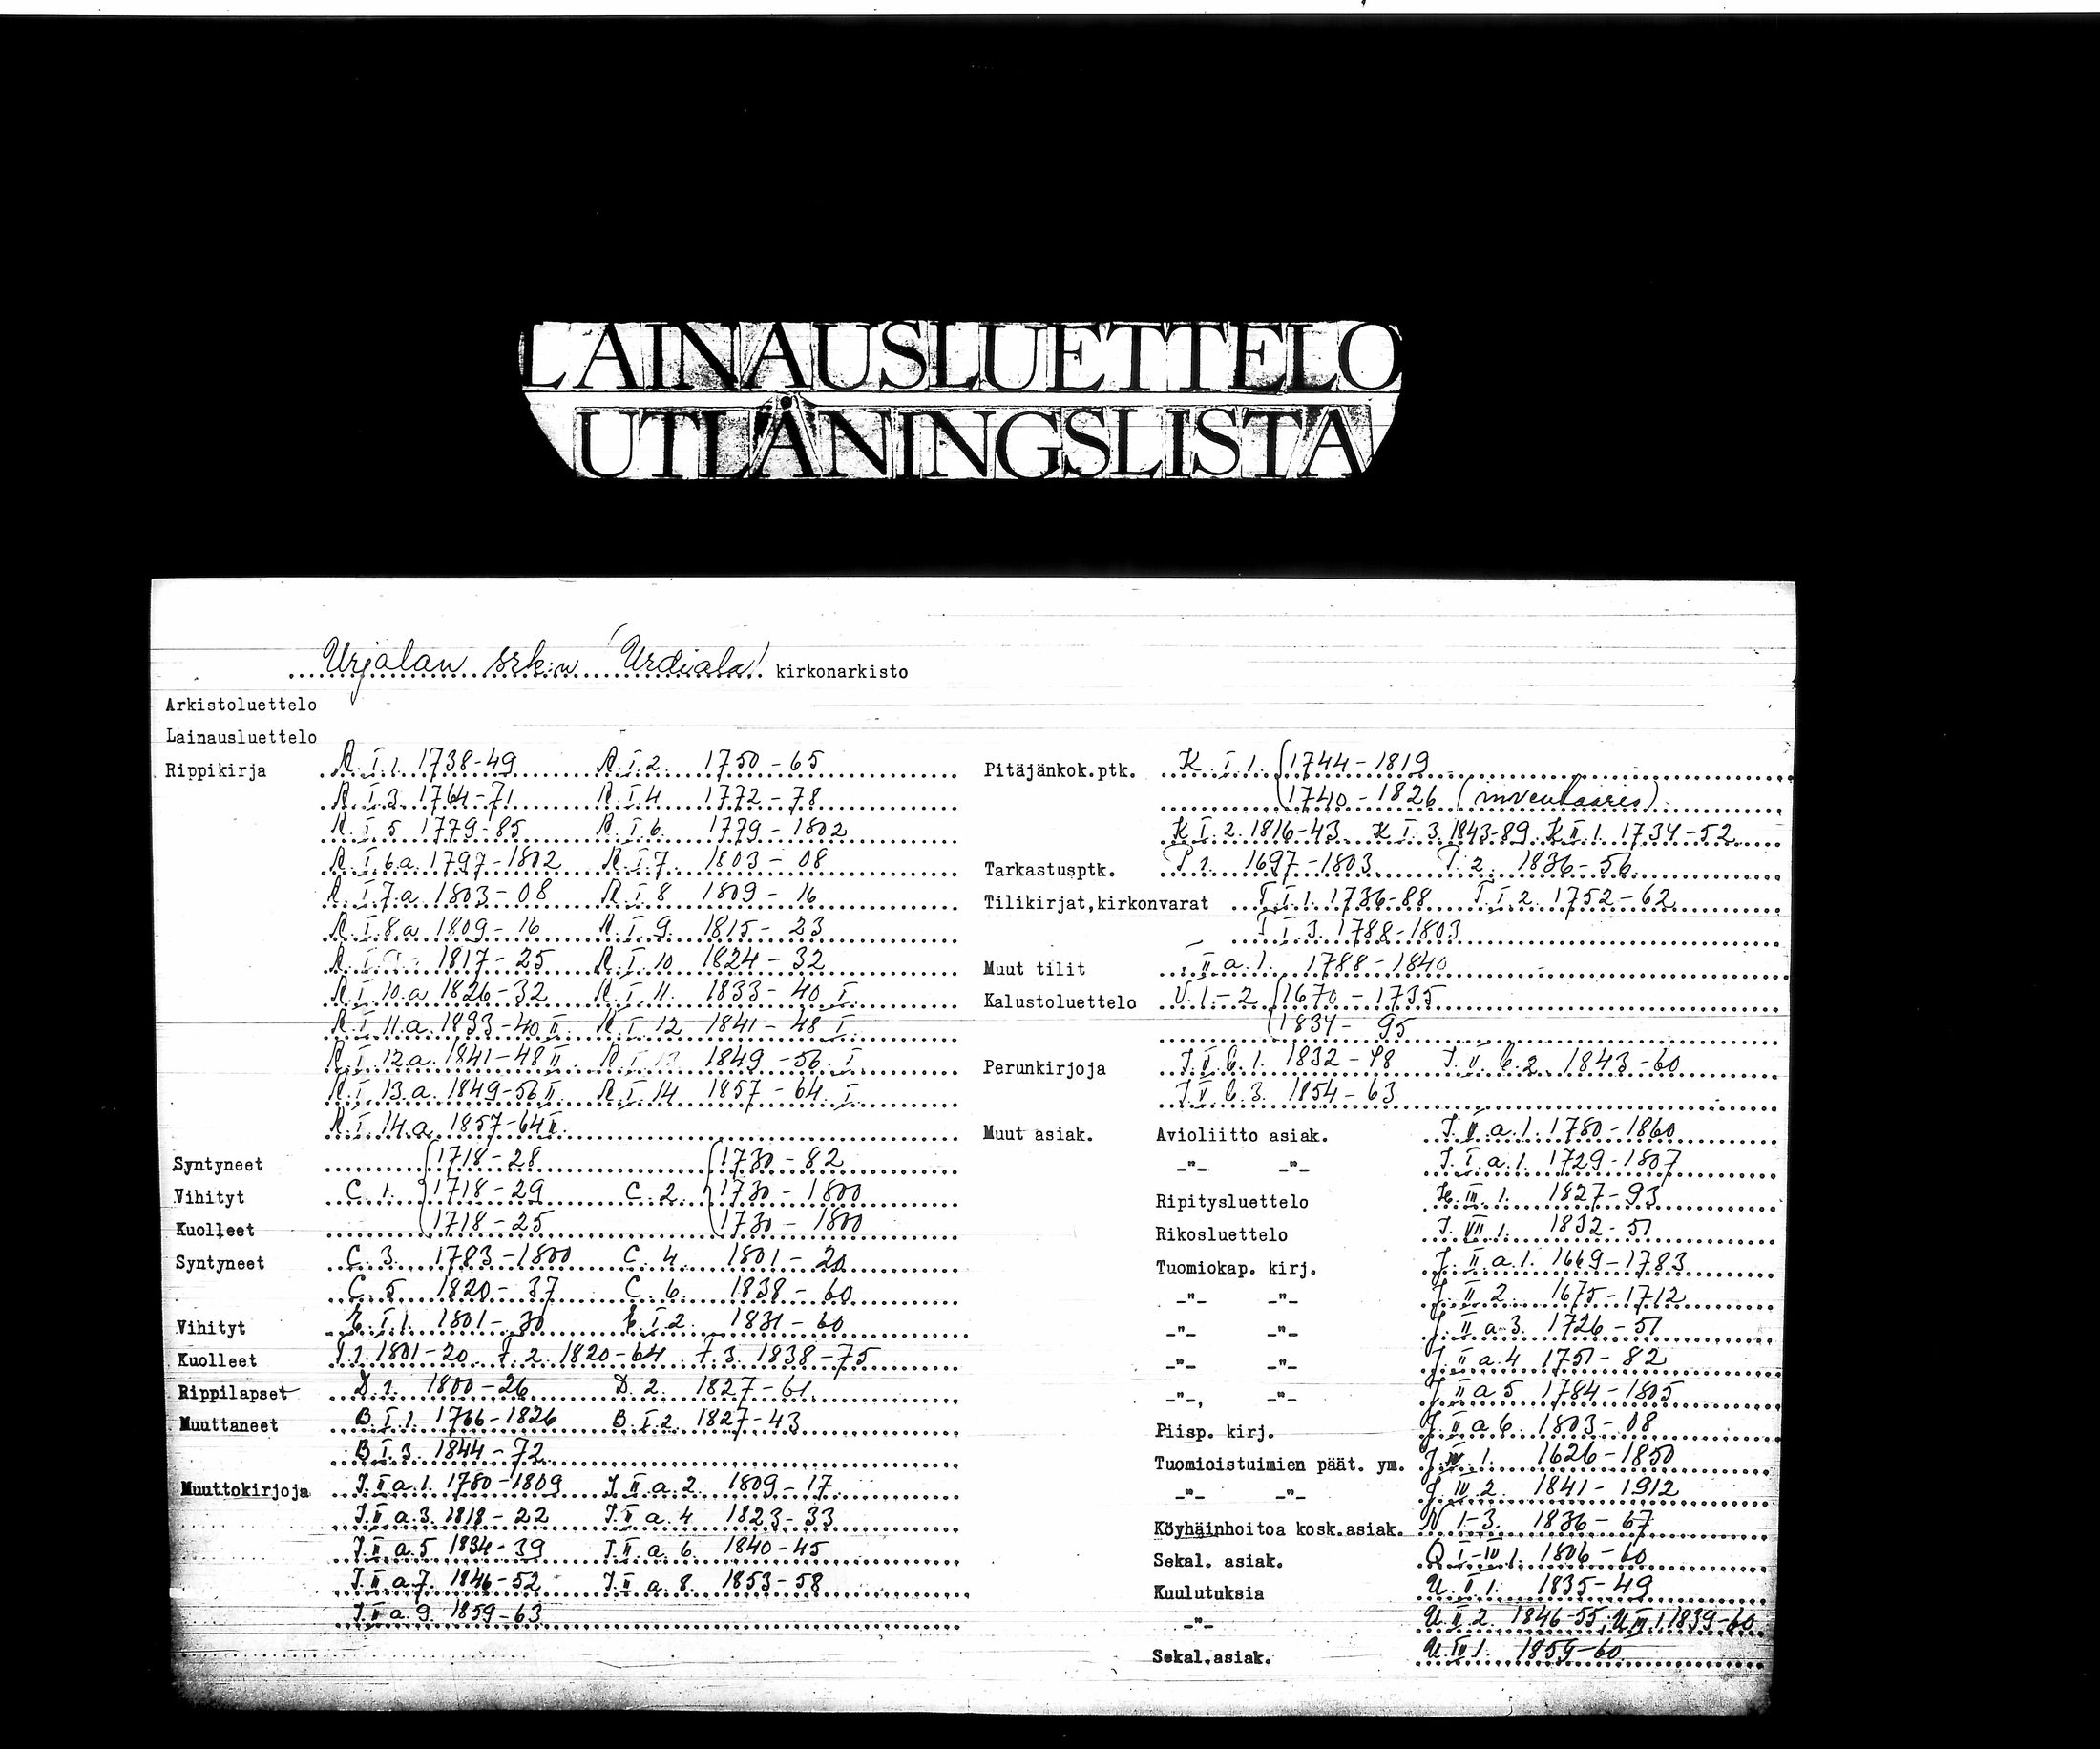 LAINAUSLUETTELO
UTLÅNINGSLISTA
Urjalan srk:n (Urdiala) kirkonarkisto
Arkistoluettelo
Lainausluettelo
Rippikirja R.I.1. 1738-49 R.I.2. 1750-65
R.I.3. 1764-71 R.I.4 1772-78
R.I.5 1779-85 R.I.6. 1779-1802
R.I.6.a. 1797-1802 R.I.7. 1803-08
R.I.7.a 1803-08 R.I.8 1809-16
R.I.8.a 1809-16 R.I.9. 1815-23
R.I. 1817-25 R.I.10 1824-32
R.I.10.a 1826-32 R.I.11. 1833-40 I.
R.I.11.a. 1833-40 II. R.I.12 1841-48 I.
R.I.12.a. 1841-48 II R.I.13. 1849-56 I
R.I.13.a. 1849-56 II. R.I.14 1857-64 I.
R.I.14.a 1857-64 II.
Syntyneet 1718-28 1730-82
Vihityt C.1. 1718-29 C.2. 1730-1800
Kuolleet 1718-25 1730-1800
Syntyneet C.3. 1783-1800 C.4. 1801-20
C.5 1820-37 C.6. 1838-60
Vihityt E.I.1. 1801-30 E.I.2. 1831-60
Kuolleet F.1. 1801-20 F.2. 1820-64 F.3. 1838-75
Rippilapset D.1. 1800-26 D.2. 1827-61
Muuttaneet B.I.1. 1766-1826 B.I.2. 1827-43
B.I.3. 1844-72
Muuttokirjoja J.II.a.1. 1780-1809 J.II.a.2. 1809-17
J.II.a.3. 1818-22 J.II.a.4 1823-33
J.II.a.5 1834-39 J.II.a.6. 1840-45
J.II.a.7. 1846-52 J.II.a.8. 1853-58
J.II.a.9. 1859-63
Pitäjänkok.ptk. K.I.1. 1744-1819
1740-1826 (inventaaries)
K I.2. 1816-43. K I.3. 1843-89. K II.1. 1734-52
Tarkastusptk. P.1. 1697-1803 P.2. 1836-56
Tilikirjat,kirkonvarat T.I.1. 1736-88 T.I.2. 1752-62
T I.3. 1788-1803
Muut tilit II a.1. 1788-1840
Kalustoluettelo V.1-2 1670-1735
1834-95
Perunkirjoja J.V.b.1. 1832-48 J.V.b.2. 1843-60
J.V.b.3. 1854-63
Muut asiak. Avioliitto asiak. J.V.a.1. 1780-1860
-"- -"- J.I.a.1. 1729-1807
Ripitysluettelo H.III.1. 1827-93
Rikosluettelo J.VII.1. 1832-51
Tuomiokap. kirj. J.II.a.1. 1669-1783
-"- -"- J.II.2. 1675-1712
-"- -"- J.II.a.3. 1726-51
-"- -"- J.II.a.4 1751-82
-"-, -"- J.II.a.5 1784-1805
Piisp. kirj. J.II.a.6. 1803-08
Tuomioistuimien päät. ym. J.IV.1. 1626-1850
-"- -"- J.IV.2. 1841-1912
Köyhäinhoitoa kosk.asiak. N 1-3. 1836-67
Sekal. asiak. Q I-IV 1. 1806-60
Kuulutuksia U.II.1. 1835-49
-"- U.II.2. 1846-55; U.III.1. 1839-60
Sekal.asiak. U.IV.1. 1859-60